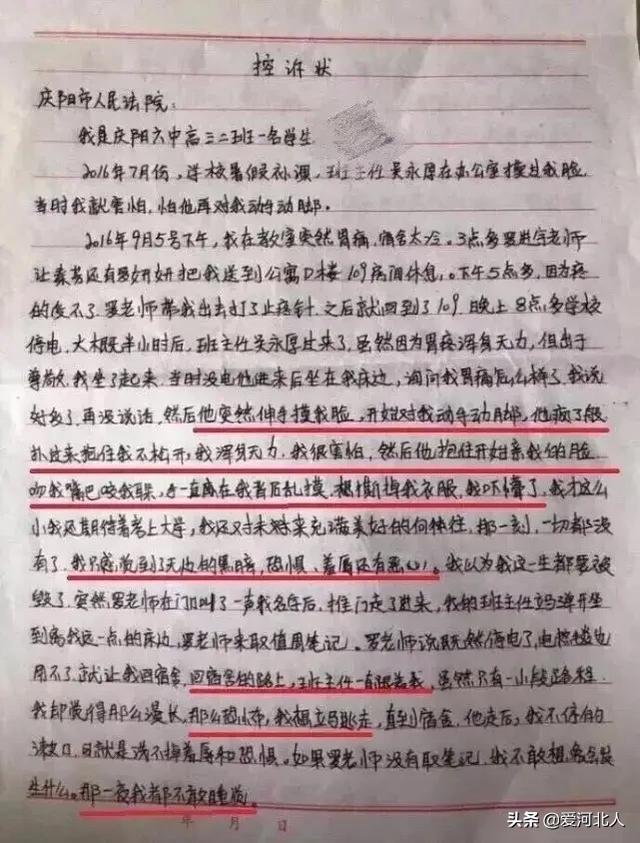 控诉状
庆阳市人民法院：
我是庆阳六中高三二班一名学生
2016年7月份，学校暑假补课，班主任吴永厚在办公室摸过我脸
当时我就害怕，怕他再对我动手动脚。
2016年9月5号下午，我在教室突然胃痛，宿舍太冷。3点多罗进宇老师
让秦芳还有妞妞把我送到公寓D楼109房间休息。下午5点多，因为疼
的受不了，罗老师带我出去打了止疼针，之后就回到了109。晚上8点多学校
停电，大概半小时后，班主任吴永厚过来了，虽然因为胃疼浑身无力，但出于
尊敬，我坐了起来，当时没电他进来后坐在我床边，询问我胃痛怎么样了，我说
好多了，再没说话，然后他突然伸手摸我脸，开始对我动手动脚，他疯了般
扑过来抱住我不松开，我浑身无力，我很害怕，然后他抱住开始亲我的脸
吻我嘴巴咬我耳朵，手一直在我背后乱摸，想撕掉我衣服，我吓懵了，我才这么
小我还期待着考上大学，我还对未来充满美好的向往，那一刻，一切都没
有了，我只感觉到了无边的黑暗，恐惧、羞辱还有恶心。我以为我这一生都要被
毁了，突然罗老师在门口叫了一声我名字后，推门走了进来，我的班主任立马弹开坐
到离我远一点的床边，罗老师来取值周笔记。罗老师说既然停电了，电热毯也
用不了，就让我回宿舍，回宿舍的路上，班主任一直跟着我，虽然只有一小段路程，
我却觉得那么漫长，那么恐怖，我想立马逃走，直到宿舍，他走后，我不停的
漱口，但就是洗不掉羞辱和恐惧。如果罗老师没有取笔记，我不敢想象会发
生什么。那一夜我都不敢睡觉。
年 月 日
头条 @爱河北人